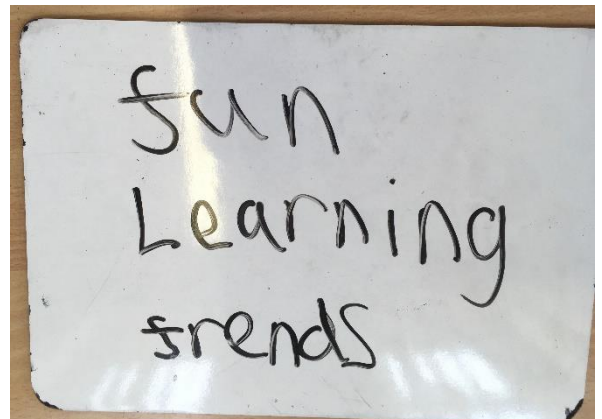 fun
Learning
frends